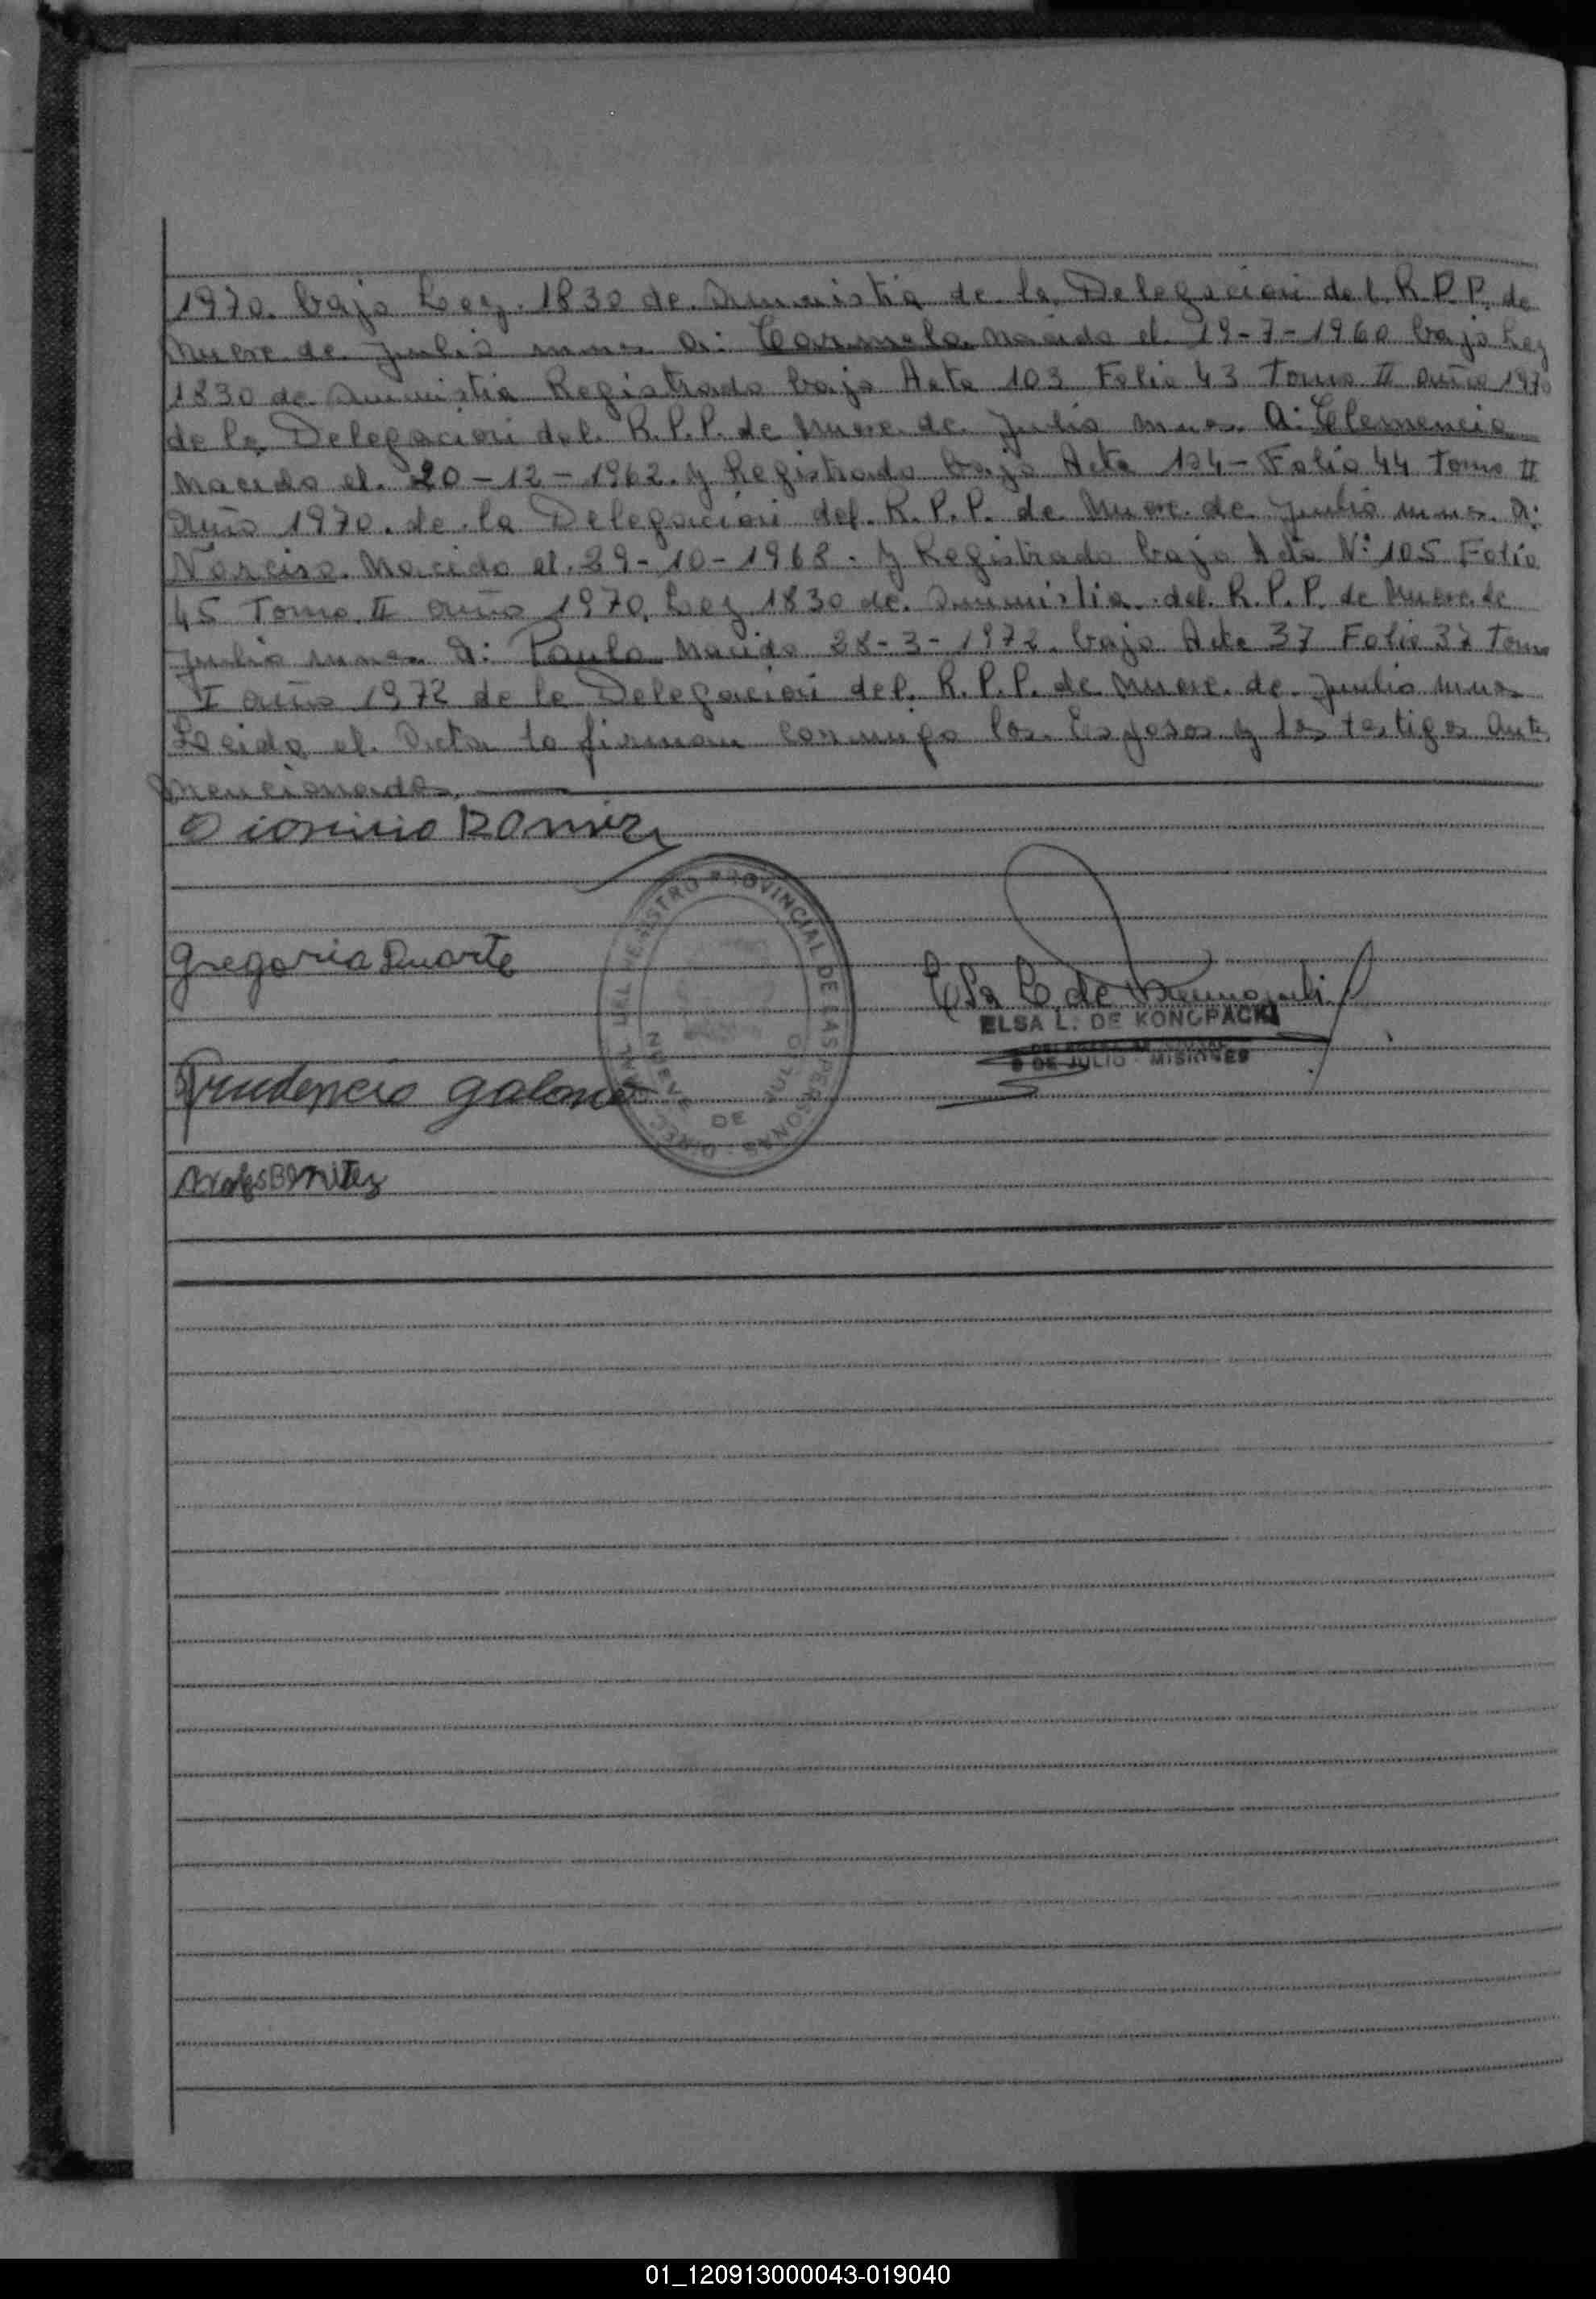 1970. bajo Ley. 1830 de Amnistia de la Delegacion del. R.P.P. de
Nueve de Julio mnes. A: Carmela. Nacida el. 19-7-1960 bajo Ley
1830 de Amnistia Registrada bajo Acta 103 Folio 43 Tomo II año 1970
de la Delegacion del. R.P.P. de Nueve de Julio mnes. A: Clemencia
Nacida el. 20-12-1962. y Registrada bajo Acta 104- Folio 44 Tomo II
Año 1970. de la Delegacion del. R.P.P. de Nueve de Julio mnes. A:
Narciso. Nacido el. 29-10-1968. y Registrado bajo Acta N° 105 Folio
45 Tomo II año 1970, Ley 1830 de. Amnistia. del. R.P.P. de Nueve de
Julio mnes. A: Paula Nacida 28-3-1972. bajo Acta 37 Folio 37 Tomo
I año 1972 de la Delegacion del. R.P.P. de Nueve. de Julio mnes
Leida el. Acta la firman conmigo los. Esposos y los testigos ante
mencionados.
Dionicio Ramirez
Gregoria Duarte
Elsa L. de Konopacki
ELSA L. DE KONOPACKI
9 DE JULIO - MISIONES
Prudencio galeano
Benitez
REGISTRO PROVINCIAL DE LAS PERSONAS
NUEVE DE JULIO
01_120913000043-019040